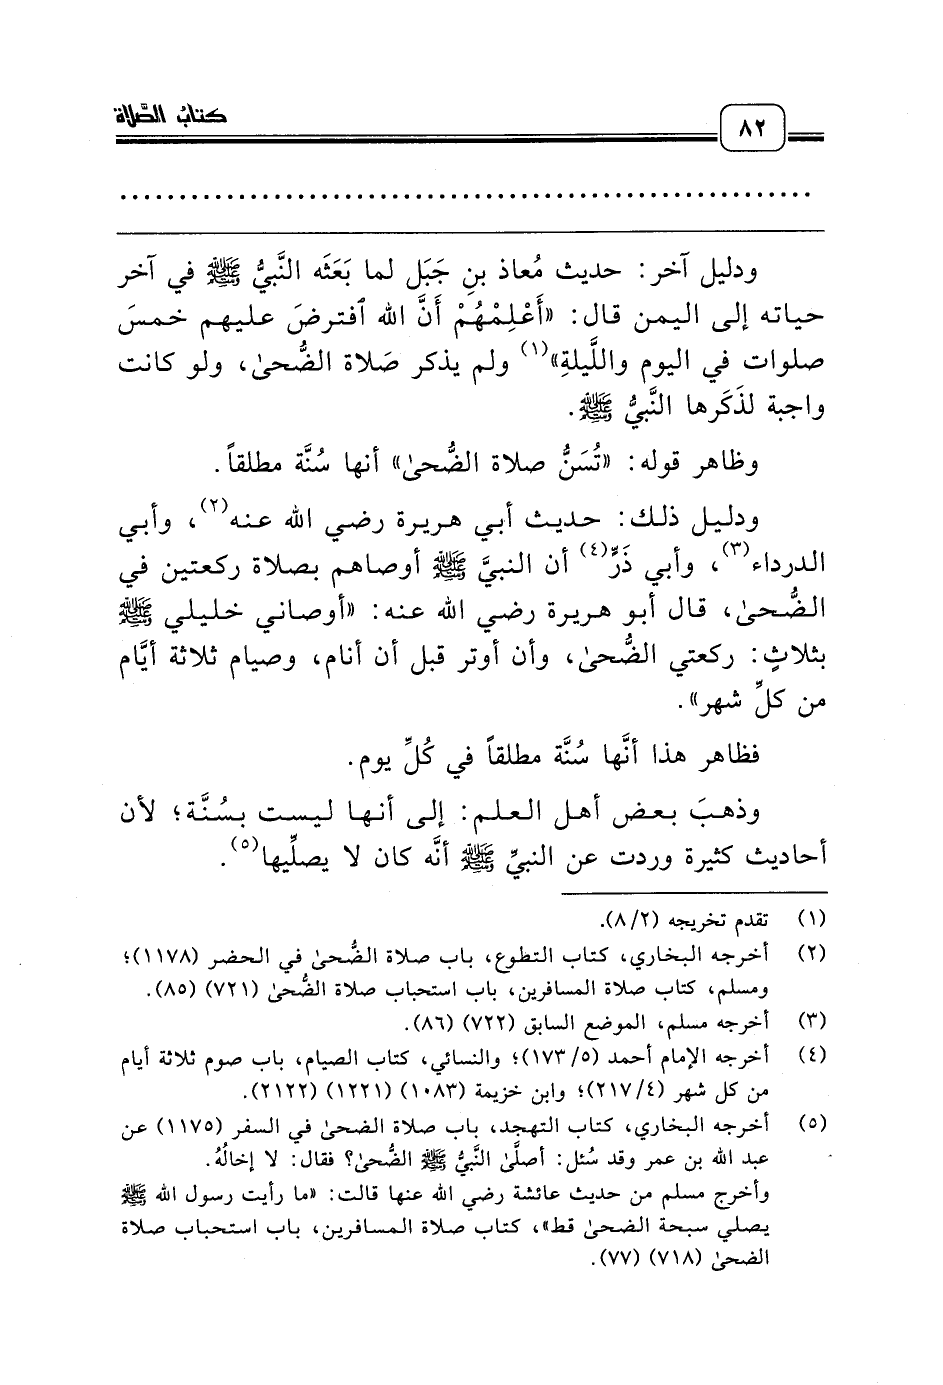 كتاب الصَّلاة
٨٢
ودليل آخر: حديث مُعاذ بنِ جَبَل لما بَعَثَه النَّبيُّ ﷺ في آخر
حياته إلى اليمن قال: «أَعْلِمْهُمْ أَنَّ الله ٱفترضَ عليهم خمسَ
صلوات في اليوم واللَّيلةِ»(١) ولم يذكر صَلاة الضُّحىٰ، ولو كانت
واجبة لذَكَرها النَّبيُّ ﷺ.
وظاهر قوله: «تُسَنُّ صلاة الضُّحىٰ» أنها سُنَّة مطلقاً.
ودليل ذلك: حديث أبي هريرة رضي الله عنه(٢)، وأبي
الدرداء(٣)، وأبي ذَرٍّ(٤) أن النبيَّ ﷺ أوصاهم بصلاة ركعتين في
الضُّحىٰ، قال أبو هريرة رضي الله عنه: «أوصاني خليلي ﷺ
بثلاثٍ: ركعتي الضُّحىٰ، وأن أوتر قبل أن أنام، وصيام ثلاثة أيَّام
من كلِّ شهر».
فظاهر هذا أنَّها سُنَّة مطلقاً في كُلِّ يوم.
وذهبَ بعض أهل العلم: إلى أنها ليست بسُنَّة؛ لأن
أحاديث كثيرة وردت عن النبيِّ ﷺ أنَّه كان لا يصلِّيها(٥).
(١) تقدم تخريجه (٨/٢).
(٢) أخرجه البخاري، كتاب التطوع، باب صلاة الضُّحىٰ في الحضر (١١٧٨)؛
ومسلم، كتاب صلاة المسافرين، باب استحباب صلاة الضُّحىٰ (٧٢١) (٨٥).
(٣) أخرجه مسلم، الموضع السابق (٧٢٢) (٨٦).
(٤) أخرجه الإمام أحمد (١٧٣/٥)؛ والنسائي، كتاب الصيام، باب صوم ثلاثة أيام
من كل شهر (٢١٧/٤)؛ وابن خزيمة (١٠٨٣) (١٢٢١) (٢١٢٢).
(٥) أخرجه البخاري، كتاب التهجد، باب صلاة الضحىٰ في السفر (١١٧٥) عن
عبد الله بن عمر وقد سُئل: أصلَّىٰ النَّبيُّ ﷺ الضُّحىٰ؟ فقال: لا إخالُهُ.
وأخرج مسلم من حديث عائشة رضي الله عنها قالت: «ما رأيت رسول الله ﷺ
يصلي سبحة الضحىٰ قط»، كتاب صلاة المسافرين، باب استحباب صلاة
الضحىٰ (٧١٨) (٧٧).